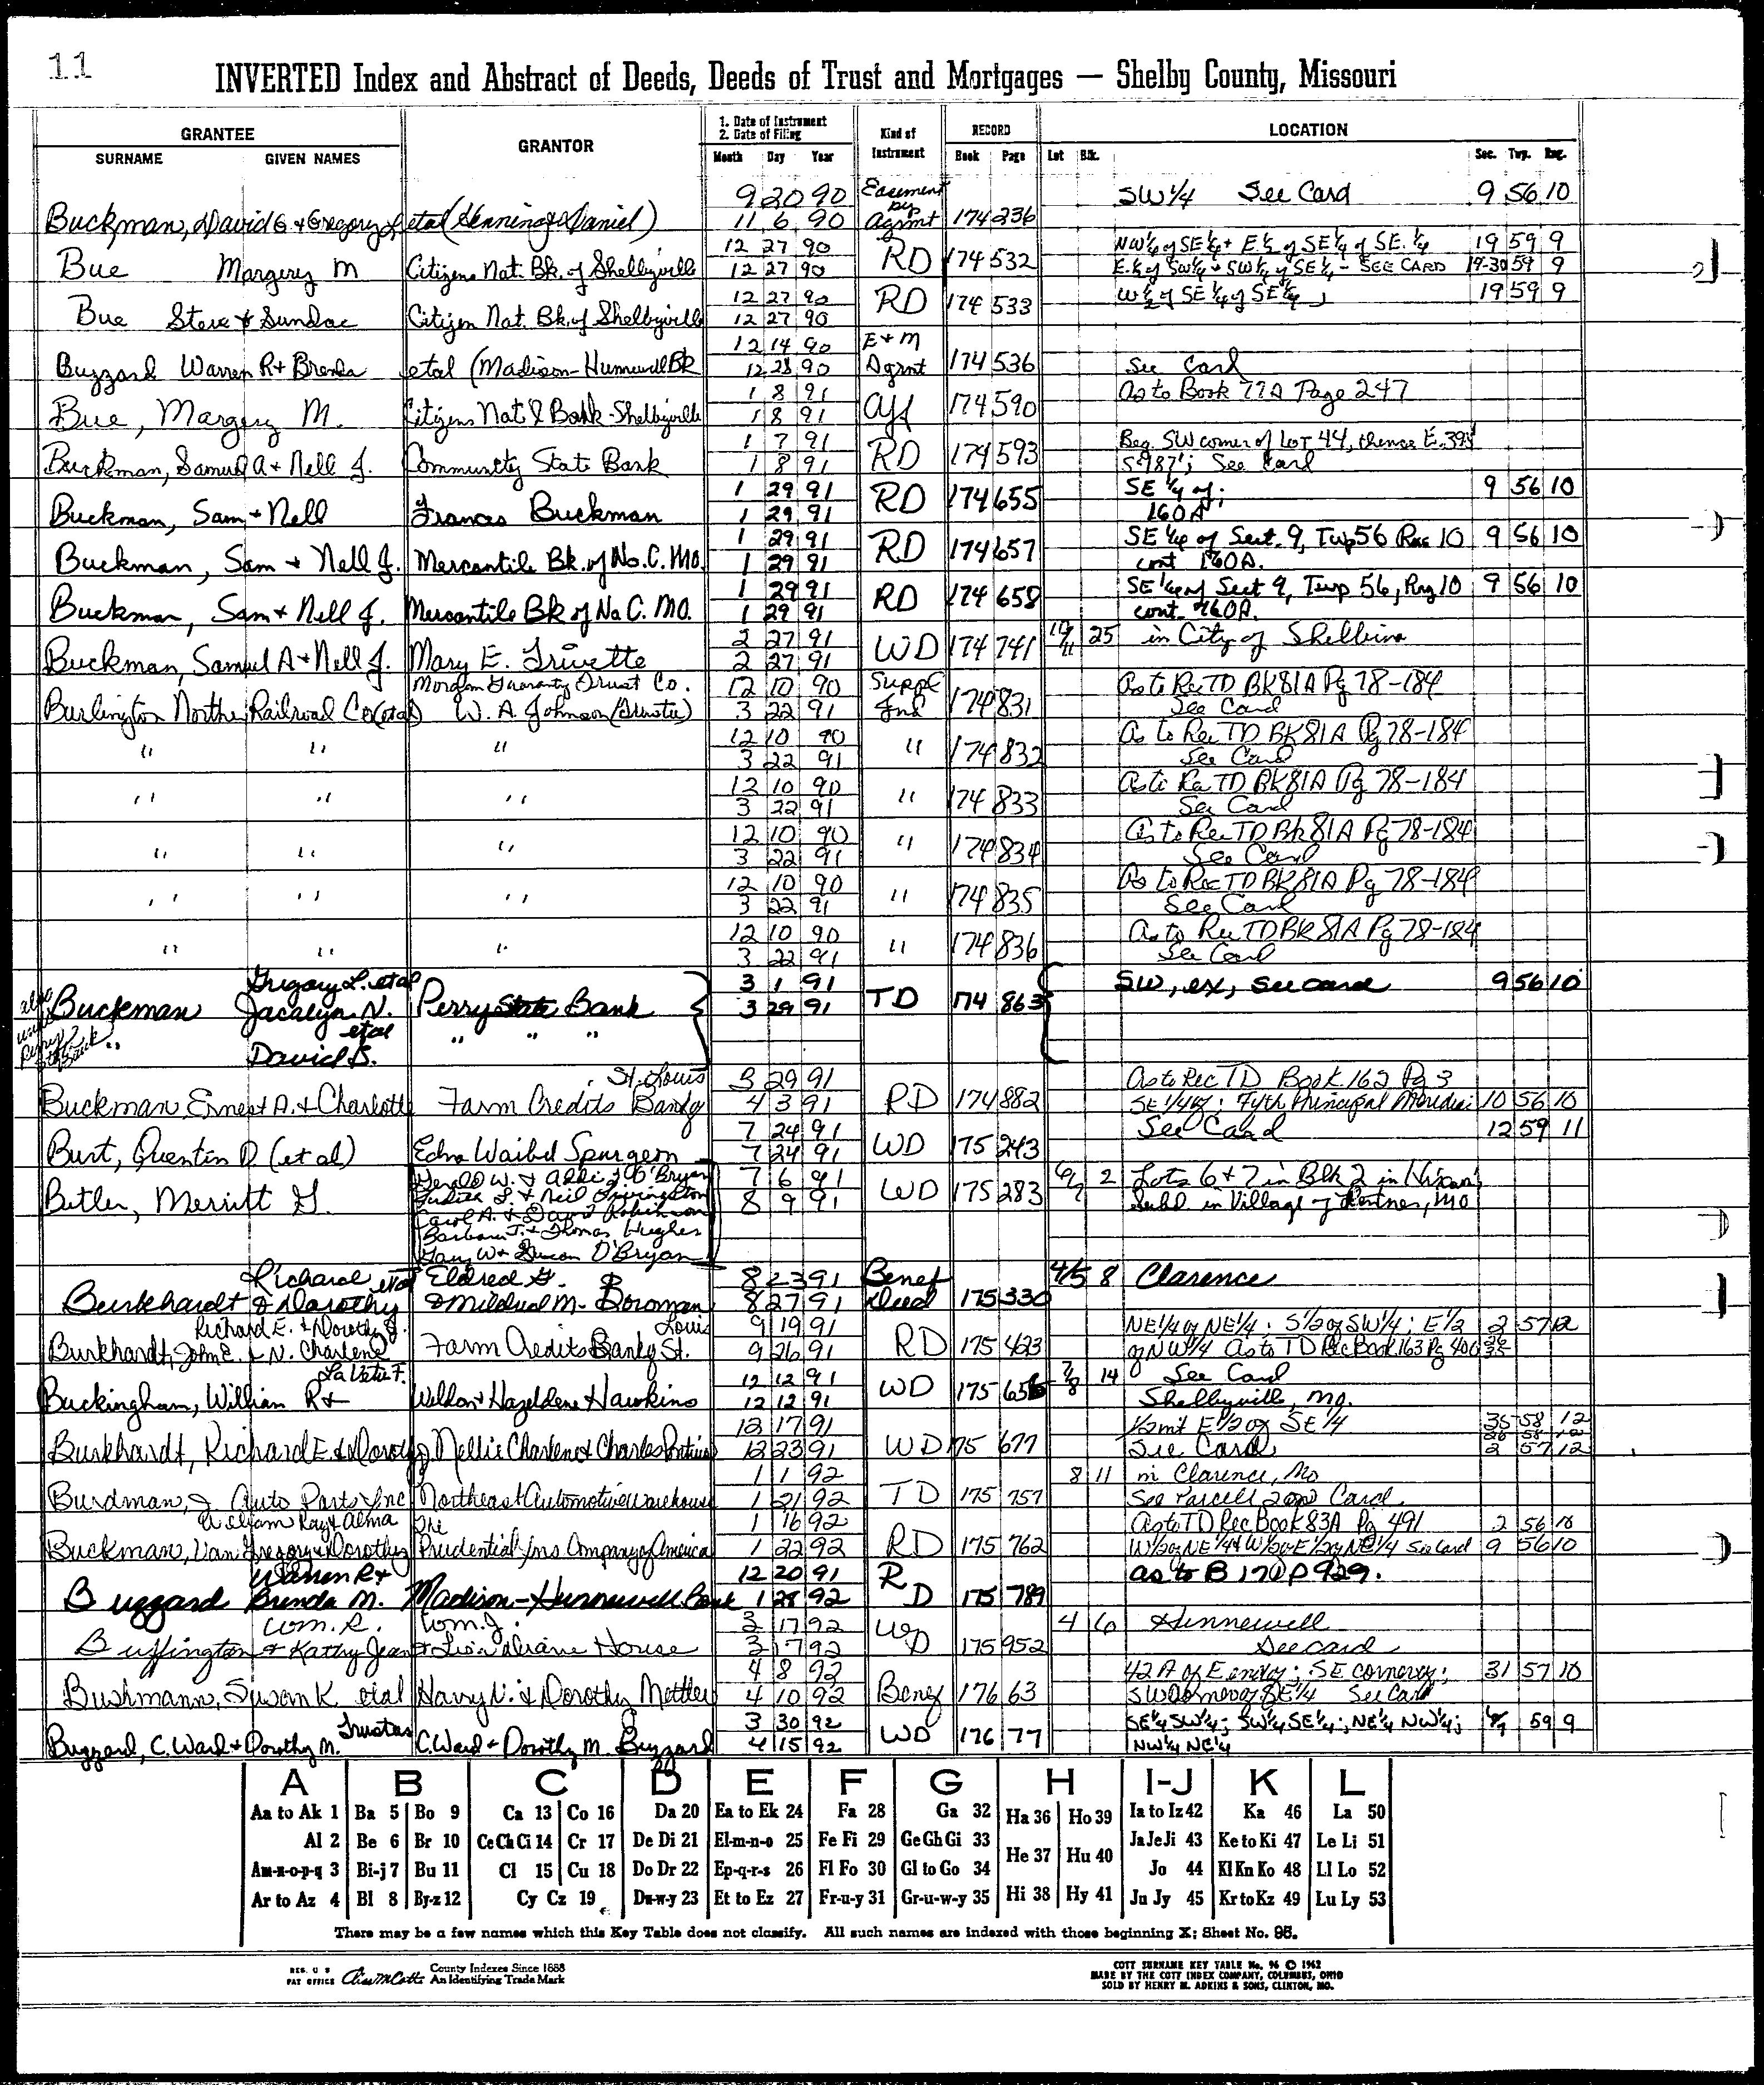 11
INVERTED Index and Abstract of Deeds, Deeds of Trust and Mortgages — Shelby County, Missouri
GRANTEE
SURNAME GIVEN NAMES
GRANTOR
1. Date of Instrument
2. Date of Filing
Month Day Year
Kind of Instrument
RECORD
Book Page
LOCATION
Lot Blk. Sec. Twp. Rng.
9 20 90 Easement SW 1/4 See Card 9 56 10
Buckman, David G & Gregory L etal (Henning & Daniel) 11 6 90 Agrmt 174 236
12 27 90 NW 1/4 of SE 1/4 + E 1/2 of SE 1/4 of SE. 1/4 19 59 9
Bue Margery M Citizens Nat. Bk. of Shelbyville 12 27 90 RD 174 532 E. 1/2 of SW 1/4 + SW 1/4 of SE 1/4 - SEE CARD 19-30 59 9
12 27 90 W 1/2 of SE 1/4 of SE 1/4 19 59 9
Bue Steve & Sundae Citizen Nat. Bk. of Shelbyville 12 27 90 RD 174 533
12 14 90 E+M
Buzzard Warren R + Brenda etal (Madison-Hunnewell Bk 12 28 90 Agrmt 174 536 See Card
1 8 91 As to Book 77A Page 247
Bue, Margery M. Citizens Nat'l Bank-Shelbyville 1 8 91 Aff 174 590
1 7 91 Beg. SW corner of Lot 44, thence E. 395'
Buckman, Samuel A + Nell J. Community State Bank 1 8 91 RD 174 593 S 987'; See Card
1 29 91 SE 1/4 of; 9 56 10
Buckman, Sam + Nell Frances Buckman 1 29 91 RD 174 655 160A
1 29 91 SE 1/4 of Sect. 9, Twp 56 Rng 10 9 56 10
Buckman, Sam + Nell J. Mercantile Bk. of No. C. Mo. 1 29 91 RD 174 657 cont 160A.
1 29 91 SE 1/4 of Sect 9, Twp 56, Rng 10 9 56 10
Buckman, Sam + Nell J. Mercantile Bk of No C. MO. 1 29 91 RD 174 658 cont. 160A.
2 27 91 10/11 25 in City of Shelbina
Buckman, Samuel A + Nell J. Mary E. Trivette 2 27 91 WD 174 741
Morgan Guaranty Trust Co. 12 10 90 Suppl As to Rec TD BK 81A Pg 78-184
Burlington Northe. Railroad Co (etal) W. A. Johnson (Trustee) 3 22 91 Ind 174 831 See Card
12 10 90 As to Rec TD BK 81A Pg 78-184
" " " 3 22 91 " 174 832 See Card
12 10 90 As to Rec TD BK 81A Pg 78-184
" " " 3 22 91 " 174 833 See Card
12 10 90 As to Rec TD Bk 81A Pg 78-184
" " " 3 22 91 " 174 834 See Card
12 10 90 As to Rec TD BK 81A Pg 78-184
" " " 3 22 91 " 174 835 See Card
12 10 90 As to Rec TD BK 81A Pg 78-184
" " " 3 22 91 " 174 836 See Card
Gregory L. etal 3 1 91 SW, ex, see card 9 56 10
Buckman Jacalyn N. Perry State Bank 3 29 91 TD 174 863
etal
" David B. " "
St. Louis 3 29 91 As to Rec TD Book 162 Pg 3
Buckman, Ernest A. & Charlotte Farm Credits Bank of 4 3 91 RD 174 882 SE 1/4 of; Principal 10 56 10
7 24 91 See Card 12 59 11
Burt, Quentin D. (et al) Edna Waibel Spurgeon 7 24 91 WD 175 243
Gerald W. & O'Bryan 7 6 91 6/7 2 Lots 6 & 7 in Blk 2 in
Butler, Merritt G. Neil 8 9 91 WD 175 283 Subd. in Village of Lentner, Mo
Carol A. & David Robinson
Barbara J. & Thomas Hughes
Gary W & Susan O'Bryan
Richard etal Eldred G. 8 23 91 Benef 4/5 8 Clarence
Burkhardt & Dorothy & Mildred M. Boroman 8 27 91 Deed 175 330
Richard E. & Dorothy J. Louis 9 19 91 NE 1/4 of NE 1/4; S 1/2 of SW 1/4; E 1/2 2 57 12
Burkhardt, John E. & N. Charlene Farm Credits Bank of St. 9 26 91 RD 175 423 of NW 1/4 As to TD Rec Book 163 Pg 400
La Veta F. 12 12 91 7/8 14 See Card
Buckingham, William R & Weldon & Hazeldene Hawkins 12 12 91 WD 175 656 Shelbyville, Mo.
12 17 91 1/2 int E 1/2 of SE 1/4 35 58 12
Burkhardt, Richard E. & Dorothy J. Nellie Charlene & Charles 12 23 91 WD 175 677 See Card 2 57 12
1 1 92 8 11 in Clarence, Mo
Burdman, J. Auto Parts Inc Northeast Automotive Warehouse 1 21 92 TD 175 757 See Parcell 2 on Card
William Ray & Alma The 1 16 92 As to TD Rec Book 83A Pg 491 2 56 10
Buckman, Van Gregory & Dorothy Prudential Ins Company of America 1 22 92 RD 175 762 W 1/2 of NE 1/4 & W 1/2 of E 1/2 of NE 1/4 See Card 9 56 10
Warren R & 12 20 91 R as to B 170 P 929.
Buzzard Brenda M. Madison-Hunnewell Bank 1 28 92 D 175 789
Wm. R. Wm. J. 3 17 92 4 6 Hunnewell
Buffington & Kathy Jean & Diane House 3 17 92 WD 175 952 See card
4 8 92 42 A of E end of; SE corner of; 31 57 10
Bushmann, Susan K. etal Harry V. & Dorothy Mettler 4 10 92 Benef 176 63 SW corner of SE 1/4 See Card
Trustees 3 30 92 SE 1/4 SW 1/4; SW 1/4 SE 1/4; NE 1/4 NW 1/4; 6/7 59 9
Buzzard, C. Ward + Dorothy M. C. Ward + Dorothy M. Buzzard 4 15 92 WD 176 77 NW 1/4 NE 1/4
A B C D E F G H I-J K L
Aa to Ak 1 Ba 5 Bo 9 Ca 13 Co 16 Da 20 Ea to Ek 24 Fa 28 Ga 32 Ha 36 Ho 39 Ia to Iz 42 Ka 46 La 50
Al 2 Be 6 Br 10 Ce Ch Ci 14 Cr 17 De Di 21 El-m-n-o 25 Fe Fi 29 Ge Gh Gi 33 He 37 Hu 40 Ja Je Ji 43 Ke to Ki 47 Le Li 51
Am-n-o-p-q 3 Bi-j 7 Bu 11 Cl 15 Cu 18 Do Dr 22 Ep-q-r-s 26 Fl Fo 30 Gl to Go 34 Jo 44 Kl Kn Ko 48 Ll Lo 52
Ar to Az 4 Bl 8 By-z 12 Cy Cz 19 Du-w-y 23 Et to Ez 27 Fr-u-y 31 Gr-u-w-y 35 Hi 38 Hy 41 Ju Jy 45 Kr to Kz 49 Lu Ly 53
There may be a few names which this Key Table does not classify. All such names are indexed with those beginning X; Sheet No. 96.
REG. U S PAT OFFICE County Indexes Since 1888 An Identifying Trade Mark
COTT SURNAME KEY TABLE No. 96 © 1962
MADE BY THE COTT INDEX COMPANY, COLUMBUS, OHIO
SOLD BY HENRY M. ADKINS & SONS, CLINTON, MO.